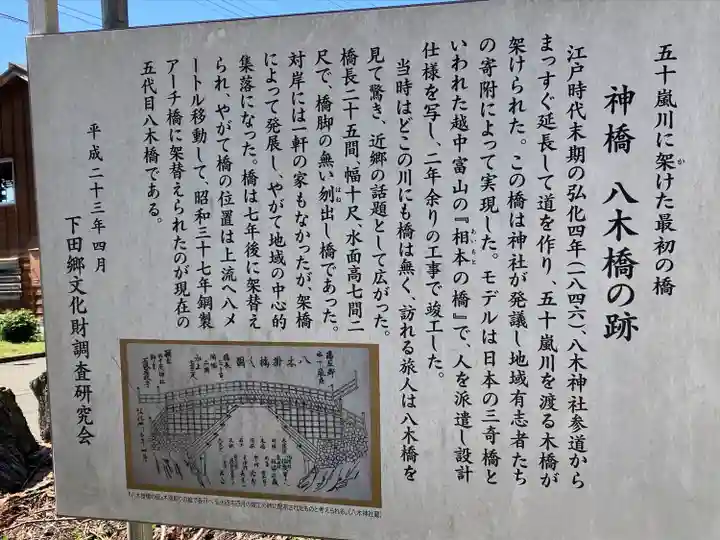 五十嵐川に架けた最初の橋
か
神橋 八木橋の跡
江戸時代末期の弘化四年(一八四六)、八木神社参道から
まっすぐ延長して道を作り、五十嵐川を渡る木橋が
架けられた。この橋は神社が発議し地域有志者たち
の寄附によって実現した。モデルは日本の三奇橋と
いわれた越中富山の『相本の橋』で、人を派遣し設計
あいもと
仕様を写し、二年余りの工事で竣工した。
当時はどこの川にも橋は無く、訪れる旅人は八木橋を
見て驚き、近郷の話題として広がった。
橋長二十五間、幅十尺、水面高七間二
尺で、橋脚の無い刎出し橋であった。
はね
対岸には一軒の家もなかったが、架橋
によって発展し、やがて地域の中心的
集落になった。橋は七年後に架替え
られ、やがて橋の位置は上流へ八メ
ートル移動して、昭和三十七年鋼製
アーチ橋に架替えられたのが現在の
五代目八木橋である。
平成二十三年四月
下田郷文化財調査研究会
八木掛橋之図